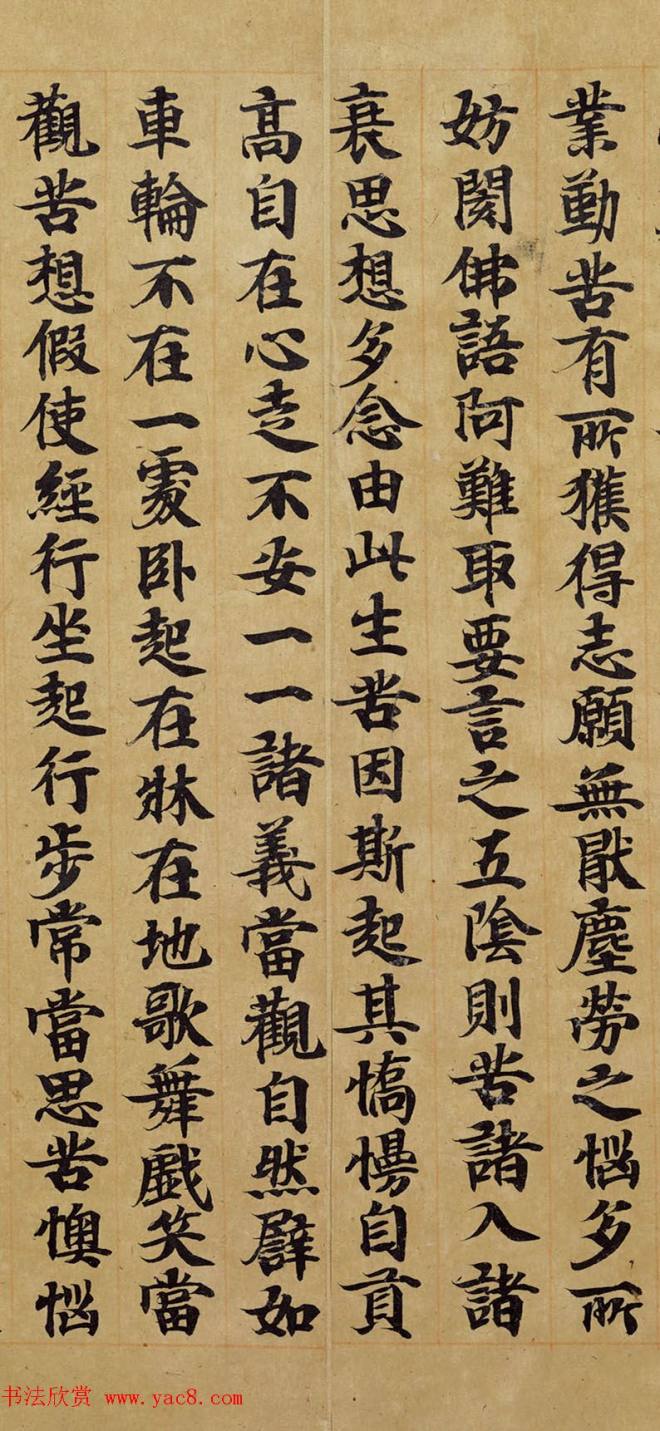 業勤苦有所獲得志願無猒塵勞之惱多所
妨閡佛語阿難取要言之五陰則苦諸入諸
衰思想多念由此生苦因斯起其憍慢自貢
髙自在心走不安一一諸義當觀自然譬如
車輪不在一處卧起在牀在地歌舞戲笑當
觀苦想假使經行坐起行步常當思苦懊惱
书法欣赏 www.yac8.com